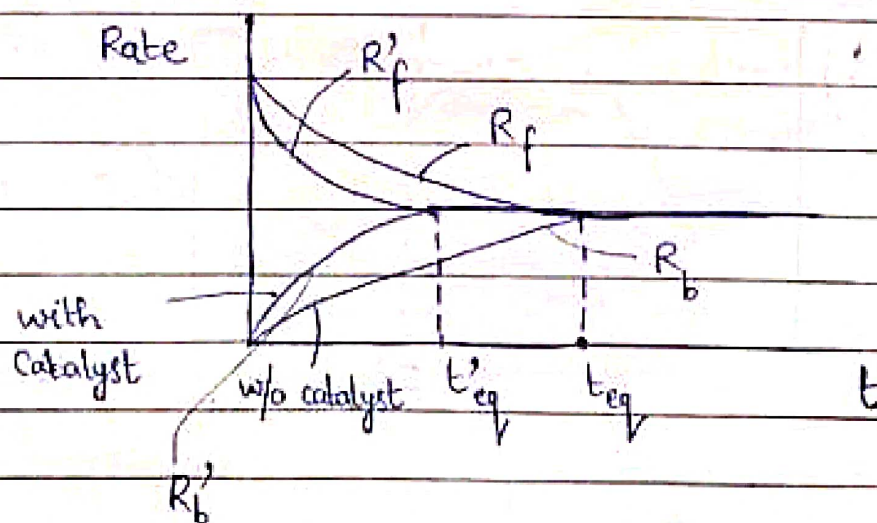 Rate
R'f
Rf
Rb
with
Catalyst
w/o catalyst
t'eq
teq
t
Rb'